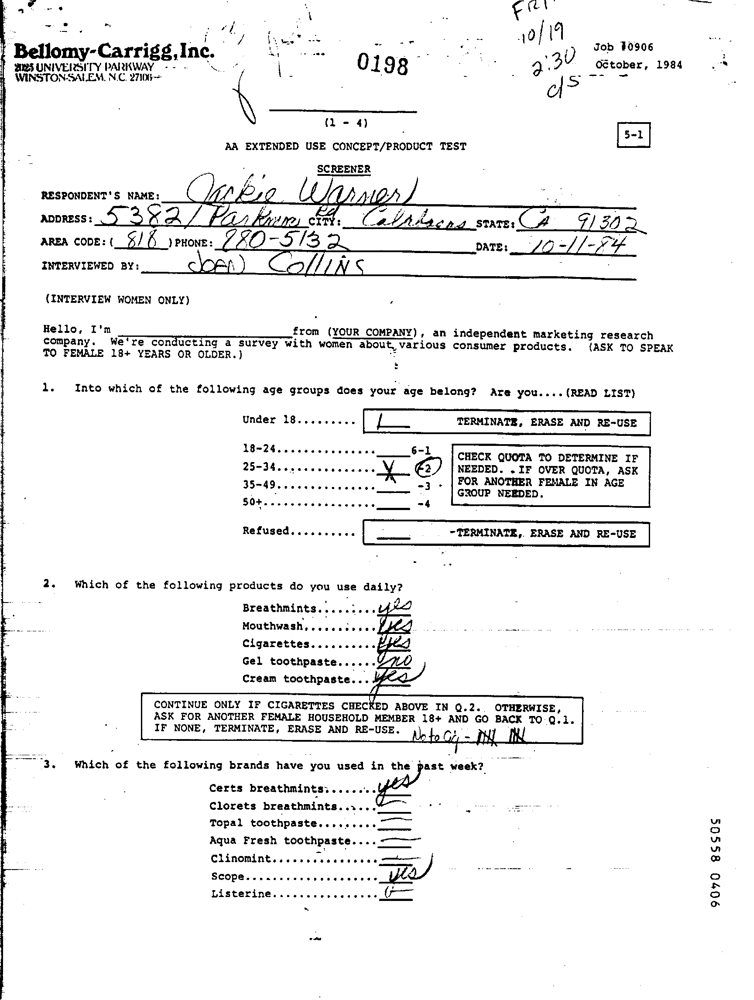 FRI
10/19
2:30
c/s
Bellomy-Carrigg, Inc.
2825 UNIVERSITY PARKWAY
WINSTON-SALEM, N.C. 27106
0198
Job 10906
October, 1984
(1 - 4)
5-1
AA EXTENDED USE CONCEPT/PRODUCT TEST
SCREENER
RESPONDENT'S NAME: Jackie Warner
ADDRESS: 5382 Rd CITY: Calabasas STATE: CA 91302
AREA CODE: ( 818 ) PHONE: 880-5132 DATE: 10-11-84
INTERVIEWED BY: Joan Collins
(INTERVIEW WOMEN ONLY)
Hello, I'm ____ from (YOUR COMPANY), an independent marketing research
company. We're conducting a survey with women about various consumer products. (ASK TO SPEAK
TO FEMALE 18+ YEARS OR OLDER.)
1. Into which of the following age groups does your age belong? Are you....(READ LIST)
Under 18......... TERMINATE, ERASE AND RE-USE
18-24............... 6-1
25-34............... X -2
35-49............... -3
50+................. -4
CHECK QUOTA TO DETERMINE IF
NEEDED. IF OVER QUOTA, ASK
FOR ANOTHER FEMALE IN AGE
GROUP NEEDED.
Refused.......... -TERMINATE, ERASE AND RE-USE
2. Which of the following products do you use daily?
Breathmints......... yes
Mouthwash........... yes
Cigarettes.......... yes
Gel toothpaste...... no
Cream toothpaste... yes
CONTINUE ONLY IF CIGARETTES CHECKED ABOVE IN Q.2. OTHERWISE,
ASK FOR ANOTHER FEMALE HOUSEHOLD MEMBER 18+ AND GO BACK TO Q.1.
IF NONE, TERMINATE, ERASE AND RE-USE. No to Cig -
3. Which of the following brands have you used in the past week?
Certs breathmints........ yes
Clorets breathmints......
Topal toothpaste.........
Aqua Fresh toothpaste....
Clinomint................
Scope.................... yes
Listerine................
50558 0406